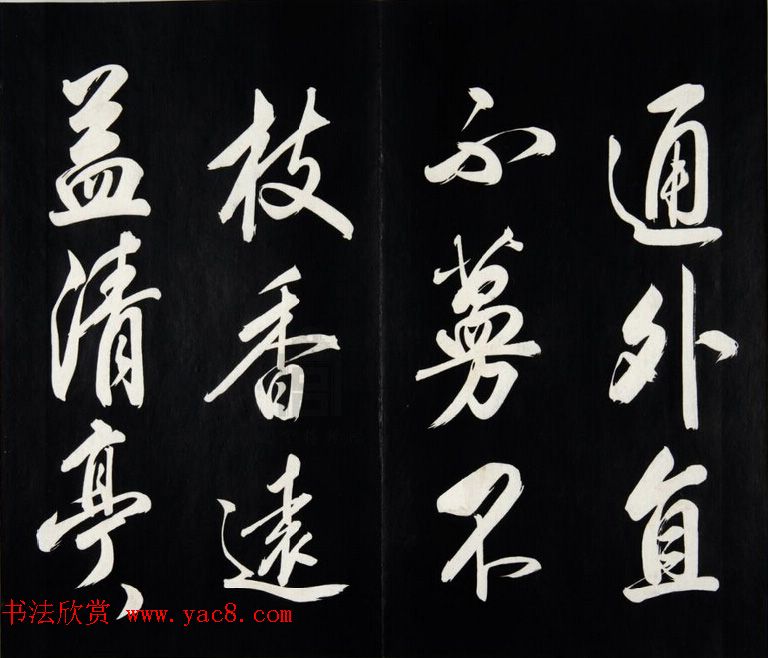 通外直
不蔓不
枝香遠
益清亭、
书法欣赏 www.yac8.com